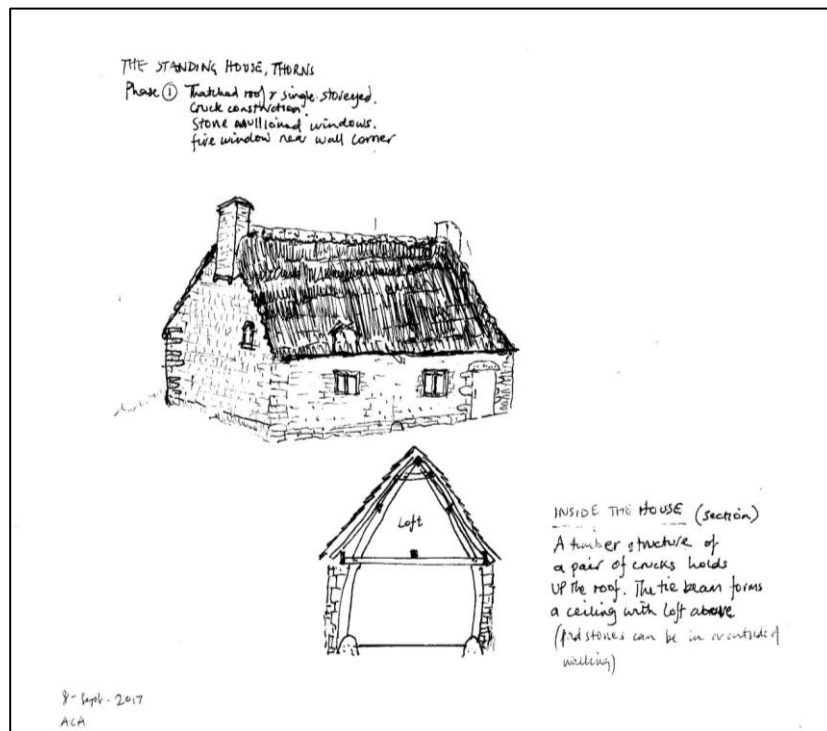 THE STANDING HOUSE, THORNS
Phase ① Thatched roof & single storeyed.
Cruck construction.
Stone mullioned windows.
fire window near wall corner
Loft
INSIDE THE HOUSE (section)
A timber structure of
a pair of crucks holds
up the roof. The tie beam forms
a ceiling with loft above
(padstones can be in or outside of
walling)
8 - Sept. 2017
ACA